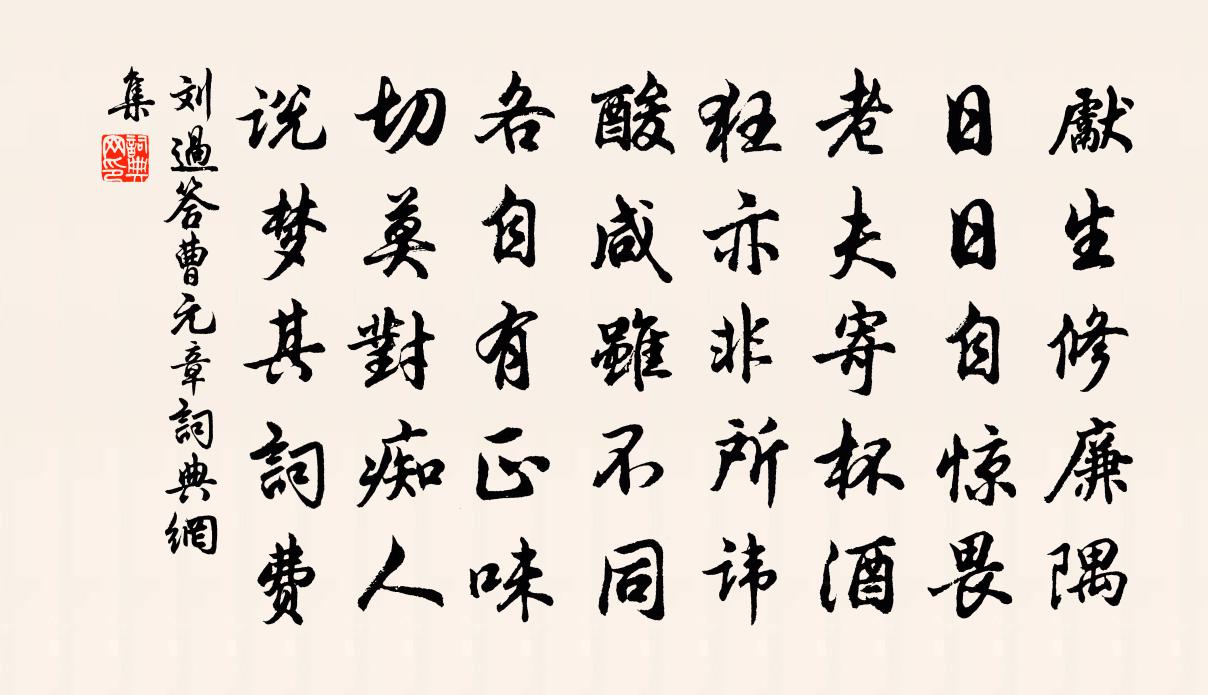 獻生修廉隅
日日自惊畏
老夫寄杯酒
狂亦非所讳
酸咸雖不同
各自有正味
切莫對痴人
说梦其詞费
刘過答曹元章詞典網
集
詞典
网印